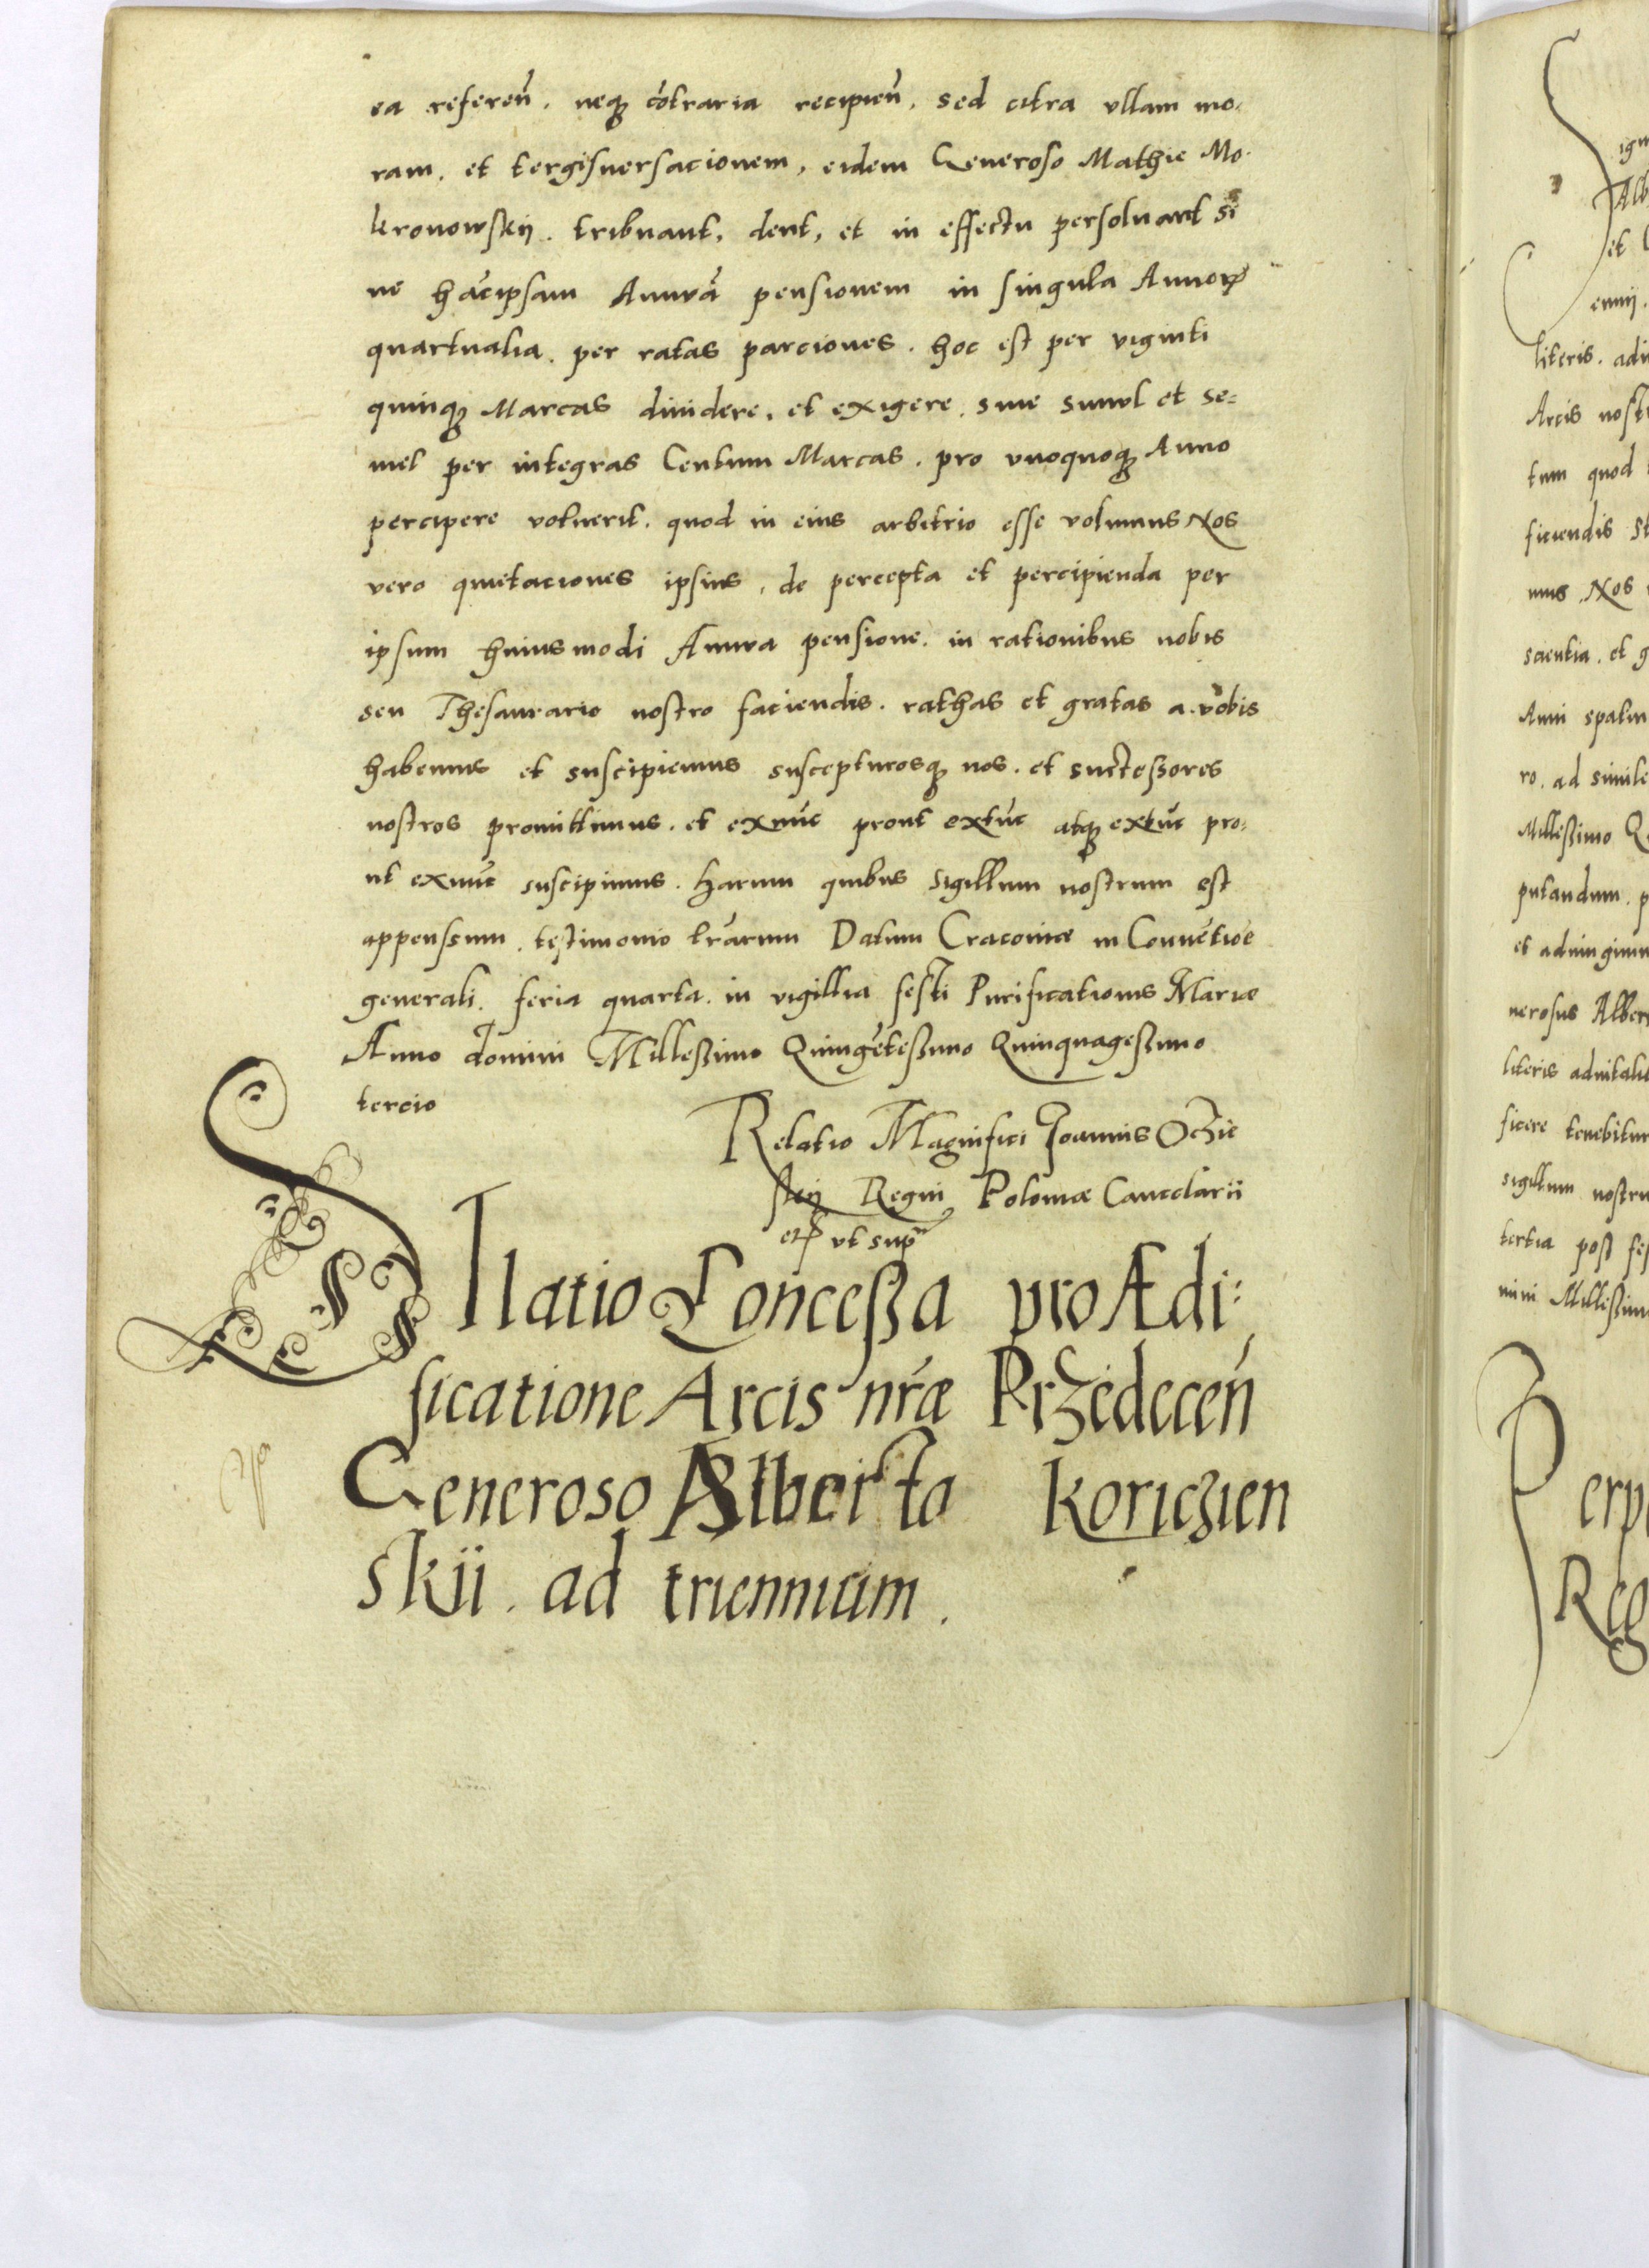 ea referen̄. neqꝫ cōtraria recipien̄. sed citra vllam mo-
ram. et tergisuersacionem, eidem Generoso Mathie Mo-
kronowskij. tribuant, dent, et in effectu persoluant si
ue hācipsam Annuā pensionem in singula Annoꝝ
quartualia. per ratas parciones. hoc est per viginti
quinqꝫ Marcas diuidere. et exigere. siue simul et se=
mel per integras Centum Marcas. pro vnoquoqꝫ Anno
percipere voluerit. quod in eius arbitrio esse volumus Nos
vero quietaciones ipsius. de percepta et percipienda per
ipsum huiusmodi Annua pensione. in rationibus nobis
seu Thesaurario nostro faciendis. rathas et gratas a. vobis
habemus et suscipiemus suscepturosqꝫ nos. et successores
nostros promittimus. et exnūc prout extūc atqꝫ extūc pro=
ut exnūc suscipimus. Harum quibus sigillum nostrum est
appenssum. testimonio lr̄arum Datum Cracouiæ in Conuētioe
generali. feria quarta. in vigillia festi Purificationis Mariæ
Anno domini Millessimo Quingētessimo Quinquagessimo
tercio
Relatio Magnifici Joannis Oczie
skij Regni Poloniæ Cancelarii
etꝝ vt sup̄
Illatio Concessa pro Ædi=
ficatione Arcis nr̄æ Przedecen̄
Generoso Alberto Koriczien
skii. ad triennium.
ign
Alb
et
ennij.
literis. adi
Arcis nostr
tum quod
ficiendis st
mus. Nos
scientia. et g
Anni spatiu
ro. ad simile
Millessimo Q
putandum. p
et adiungimu
nerosus Alber
literis aduitali
ficere tenebitur
sigillum nostru
tertia post fes
mini Millessim
Perp
Reg